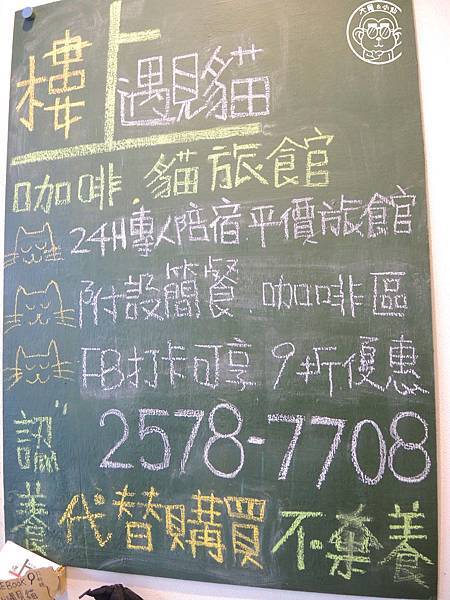 樓上遇見貓
咖啡.貓旅館
24H專人陪宿.平價旅館
附設簡餐.咖啡區
FB打卡可享9折優惠
2578-7708
認養代替購買不棄養